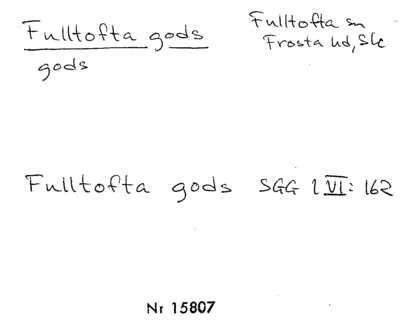 Fulltofta gods
gods
Fulltofta sn
Frosta hd, Sk
Fulltofta gods SGG 1 VI: 162
Nr 15807